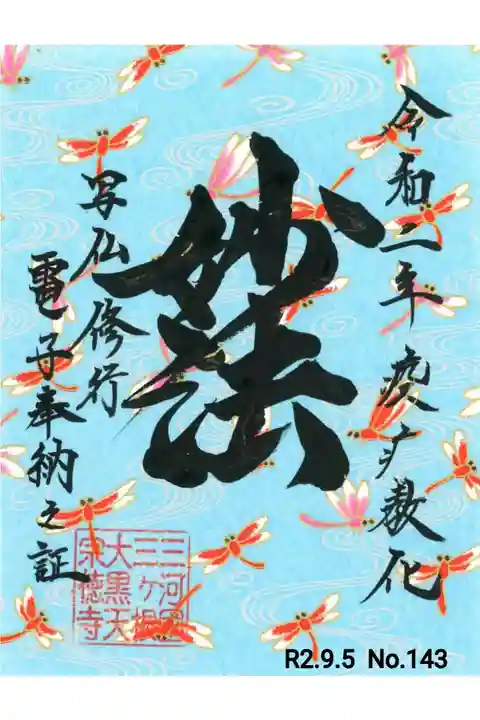 令和二年
妙法
写仏修行
電子奉納之証
三河国
三ヶ根
大黒天
宗徳寺
R2.9.5 No.143